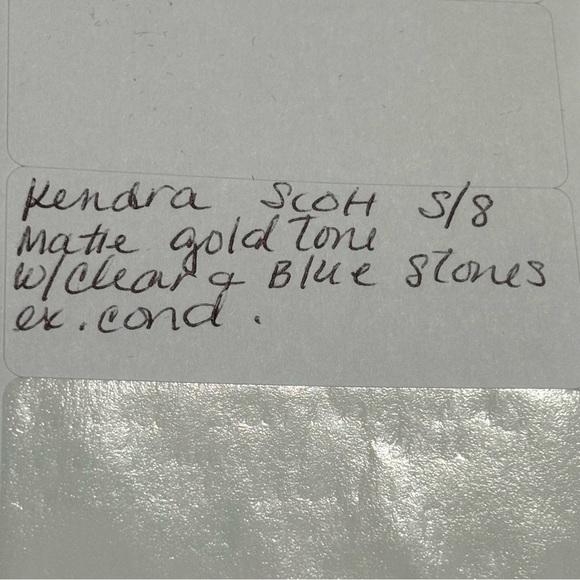 Kendra Scott S/8
Matte gold Tone
w/clear & Blue Stones
ex. cond.